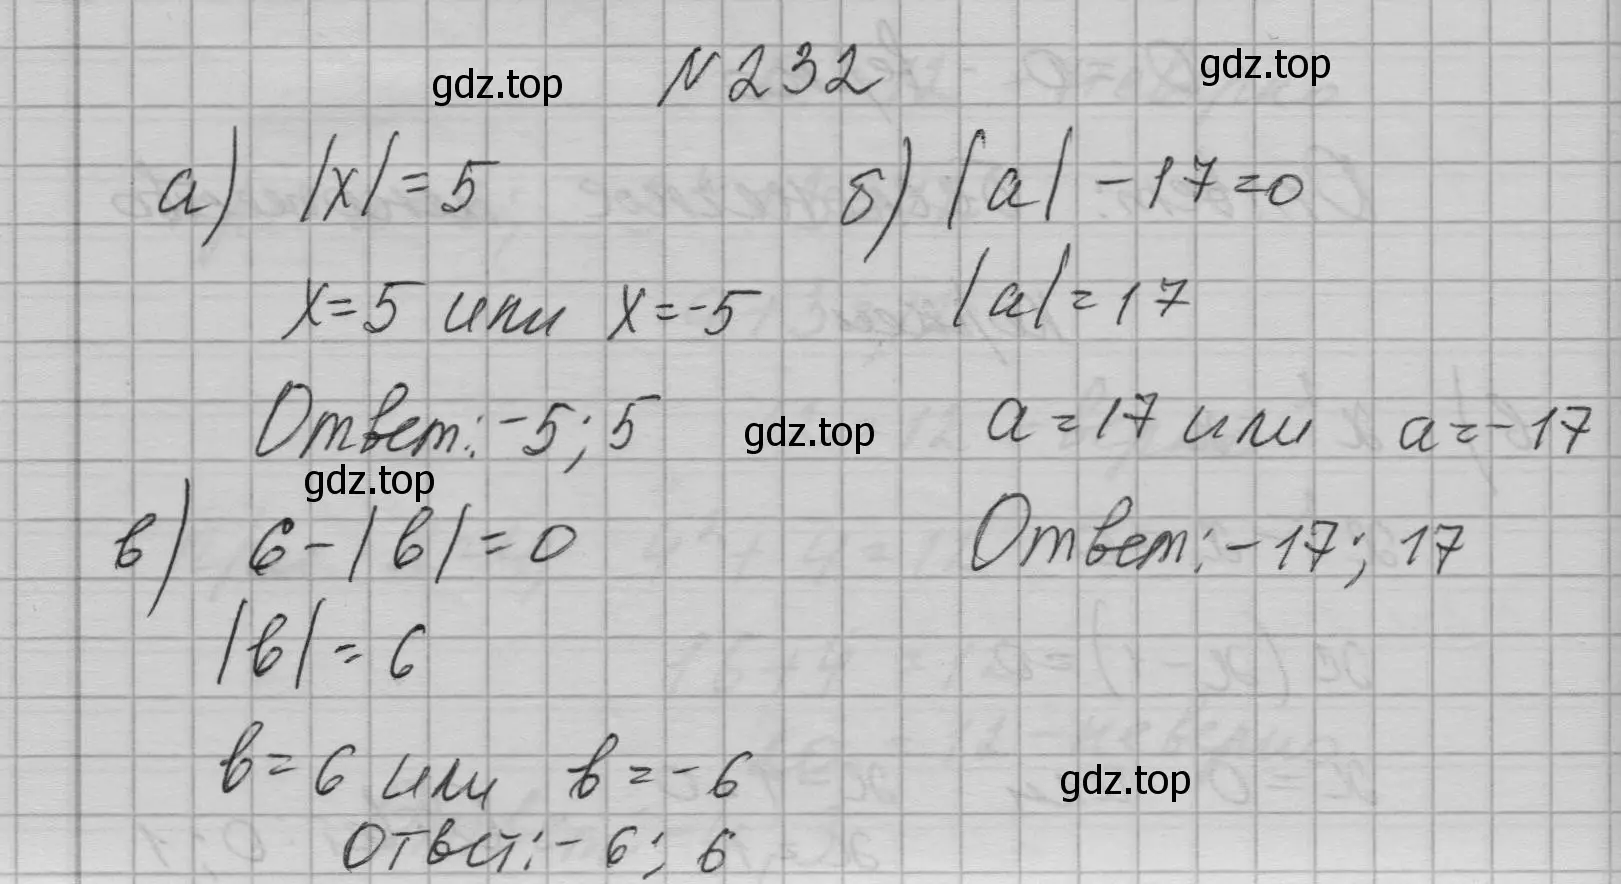 №232
а) |x| = 5
x = 5 или x = -5
Ответ: -5; 5
б) |a| - 17 = 0
|a| = 17
a = 17 или a = -17
Ответ: -17; 17
в) 6 - |b| = 0
|b| = 6
b = 6 или b = -6
Ответ: -6; 6
gdz.top
gdz.top
gdz.top
gdz.top
gdz.top